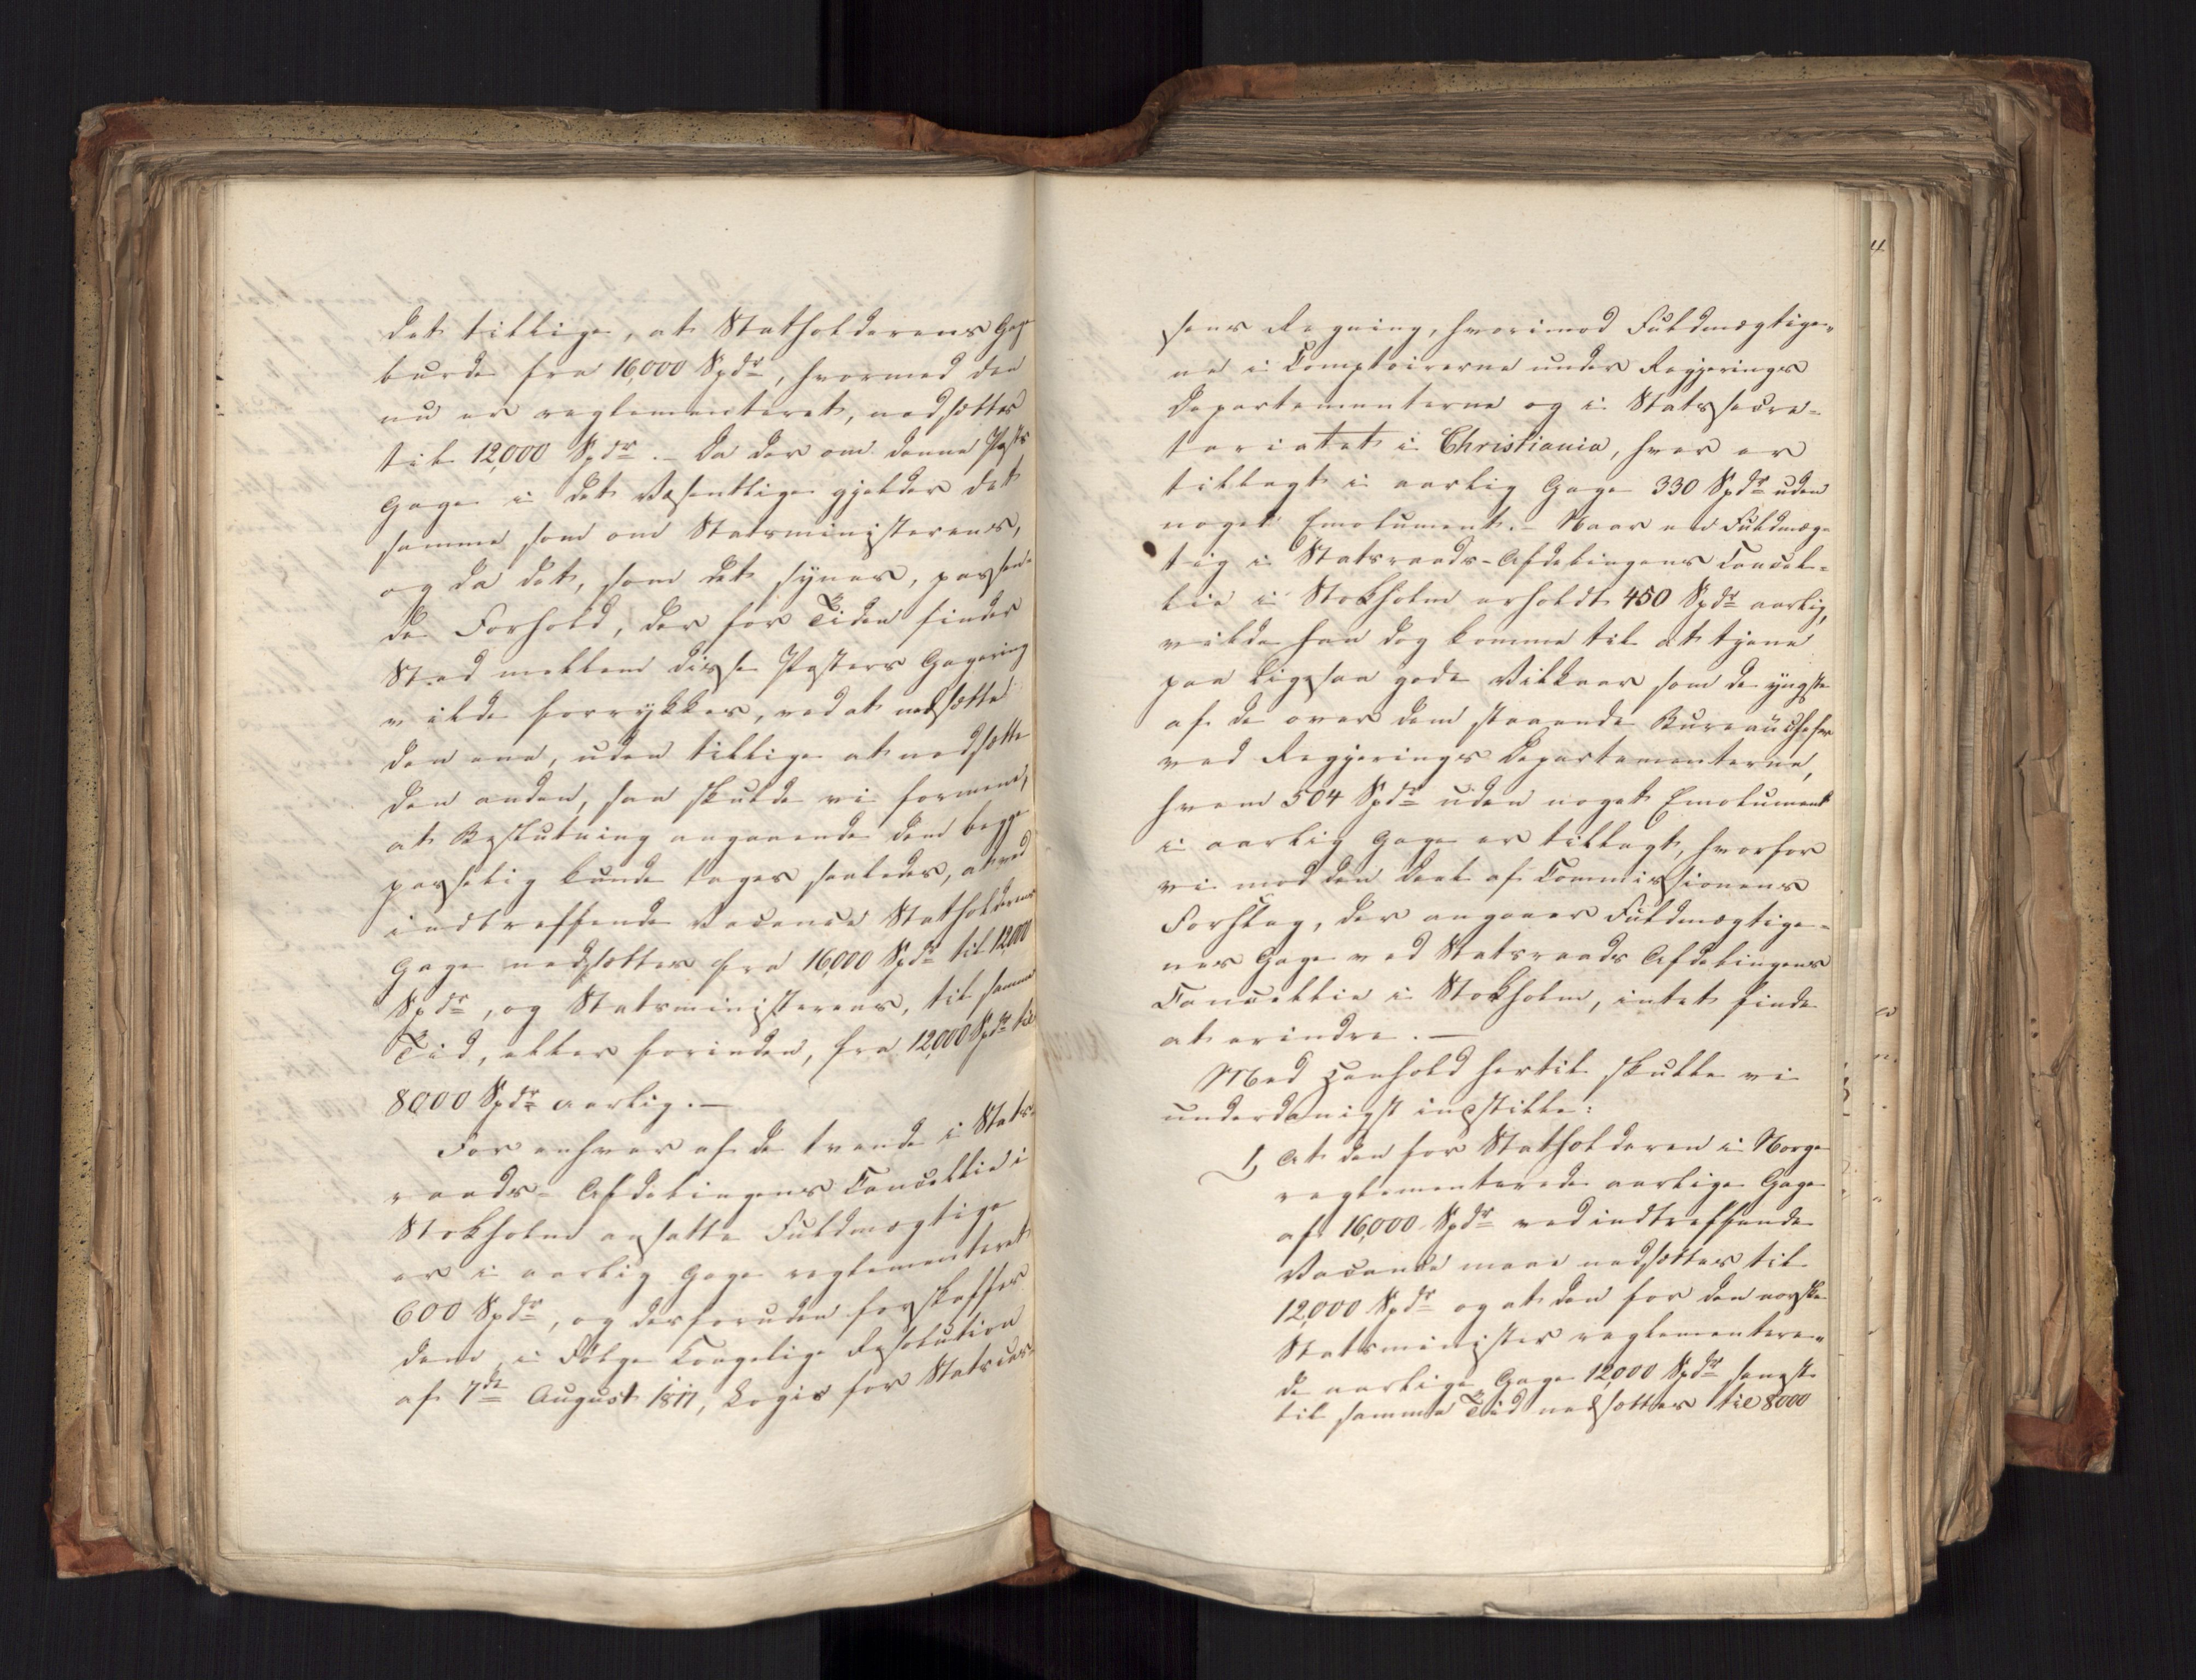 det tillige, at Statholderens Gage
burde fra 16,000 Spdr, hvormed den
nu er reglementeret, nedsættes
til 12,000 Spdr. – Da der om denne Posts
Gage i det Væsentlige gjelder det
samme som om Statsministerens,
og da det, som det synes, passen-
de Forhold, der for Tiden finder
Sted mellem disse Posters Gagering
vilde forrykkes, ved at nedsætte
den ene, uden tillige at nedsætte
den anden, saa skulde vi formene,
at Beslutning angaaende dem begge
passelig kunde tages saaledes, at ved
indtreffende Vacance Statholderens
Gage nedsættes fra 16,000 Spdr til 12,000
Spdr, og Statsministerens, til samme
Tid, eller forinden, fra 12,000 Spdr til
8000 Spdr aarlig. –
For enhver af de tvende i Stats-
raads-Afdelingens Cancellie i
Stokholm ansatte Fuldmægtige
er i aarlig Gage reglementeret
600 Spdr, og desforuden forskaffes
dem, i Følge Kongelig Resolution
af 7de August 1817, Logis for Statscas-
sens Regning, hvorimod Fuldmægtige-
ne i Comptoirerne under Regjerings
Departementerne og i Statssecre-
tariatet i Christiania, hver er
tillagt i aarlig Gage 330 Spdr uden
noget Emolument. – Naar en Fuldmæg-
tig i Statsraads-Afdelingens Cancel-
lie i Stokholm erholdt 450 Spdr aarlig,
vilde han dog komme til at tjene
paa ligesaa gode Vilkaar som de yngste
af de over dem staaende Bureauchefer
ved Regjerings Departementerne,
hvem 504 Spdr uden noget Emolument
i aarlig Gage er tillagt, hvorfor
vi mod den Deel af Commissionens
Forslag, der angaaer Fuldmægtige-
nes Gage ved Statsraads Afdelingens
Cancellie i Stokholm, intet finde
at erindre. –
Med Henhold hertil skulle vi
underdanigst indstille:
1, At den for Statholderen i Norge
reglementerede aarlige Gage
af 16,000 Spdr ved indtreffende
Vacance maae nedsættes til
12,000 Spdr og at den for den norske
Statsminister reglementere-
de aarlige Gage 12,000 Spdr senest
til samme Tid nedsættes til 8000